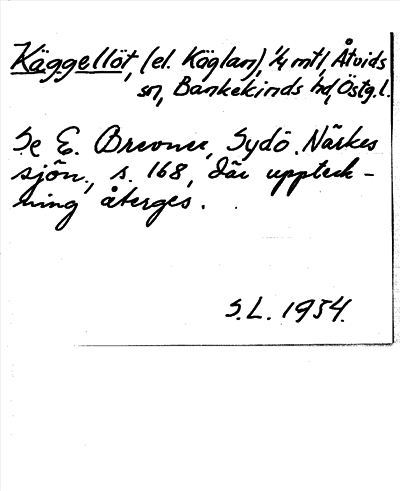 Käggellöt, (el. Köglan), 1/4 mtl, Åtvids
sn, Bankekinds hd, Östg.l.
Se E. Brevner, Sydö. Närkes
sjön., s. 168, där uppteck-
ning återges.
S.L. 1934.